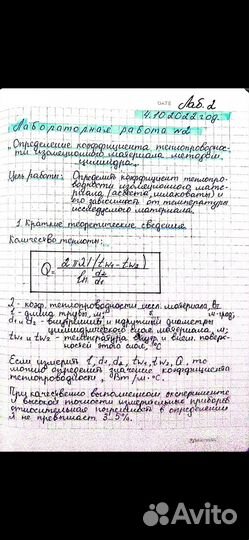 Лаб. 2
4.10.2022 год.
Лабораторная работа №2
"Определение коэффициента теплопроводнос-
ти изоляционного материала методом
цилиндра"
Цель работы: Определить коэффициент тепло-
водности изоляционного мате-
риала (асбеста, шлаковаты) и
его зависимость от температуры
исследуемого материала.
1. Краткие теоретические сведения.
Количество теплоты:
Q = 2πλl(tw1 - tw2) / ln d2/d1
λ - коэф. теплопроводности иссл. материала, Вт
l - длина трубы, м; м·град;
d1 и d2 - внутренний и наружный диаметры
цилиндрического слоя материала, м;
tw1 и tw2 - температура внутр. и внеш. повер-
ностей этого слоя, °C
Если измерить l, d1, d2, tw1, tw2, Q, то
можно определить значение коэффициента
теплопроводности, Вт/м·°C.
При качественно выполненном эксперименте
и высокой точности измерительных приборов
относительная погрешность в определении
λ не превышает 3..5%.
Avito